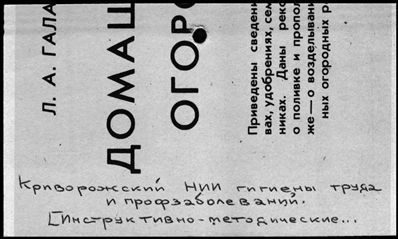 Л. А. ГАЛА
ДОМАШ
ОГОР
Приведены сведени
вах, удобрениях, сем
никах. Даны реко
о поливке и пропол
же — о возделывани
ных огородных р
Криворожский НИИ гигиены труда
и профзаболеваний.
[Инструктивно-методические...